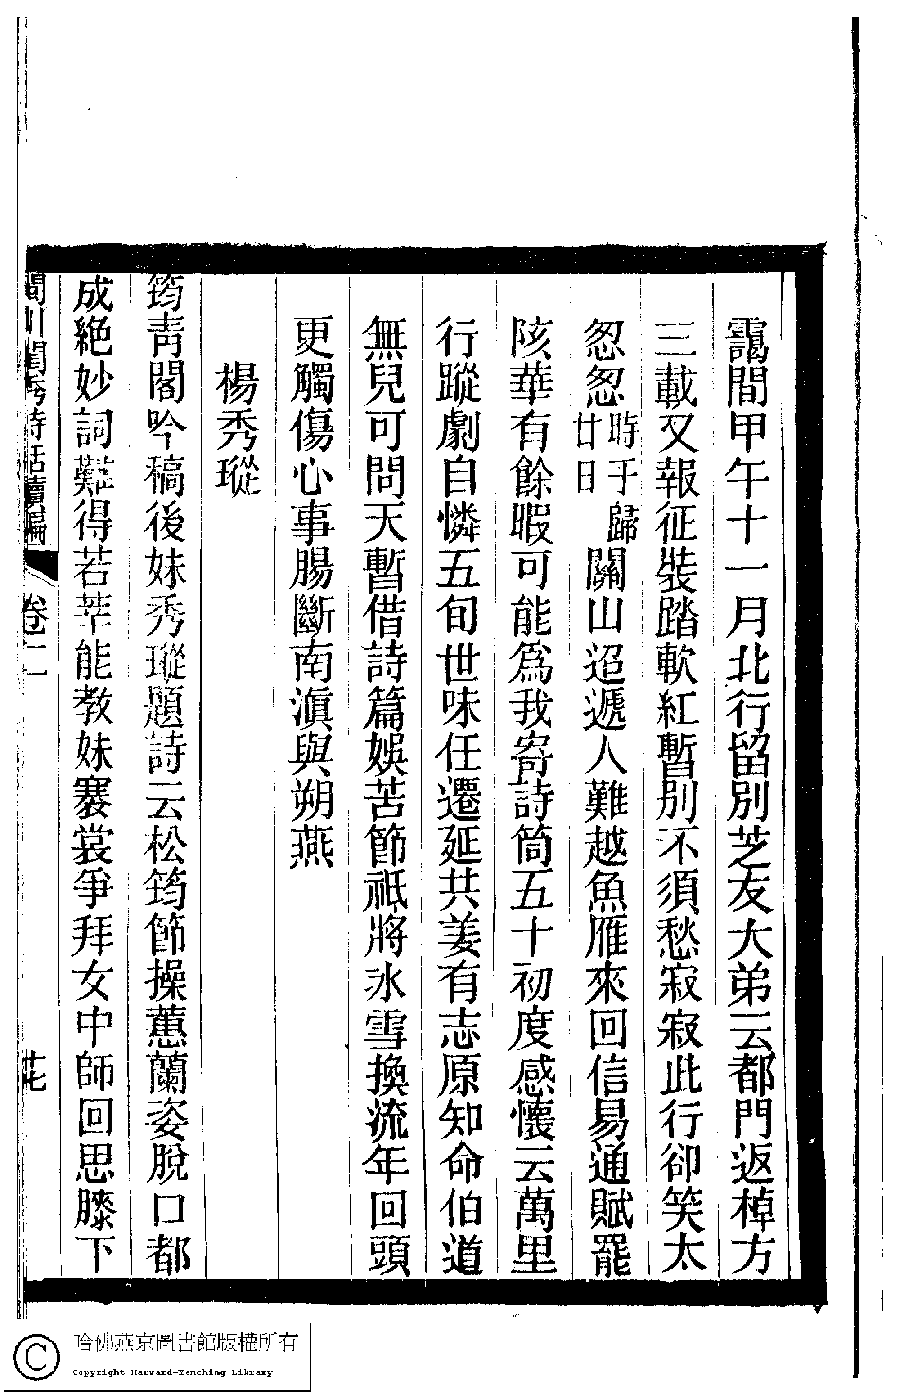 靄間甲午十一月北行留別芝友大弟云都門返棹方
三載又報征裝踏軟紅暫別不須愁寂寂此行卻笑太
怱怱時于歸廿日關山迢遞人難越魚雁來回信易通賦罷
陔華有餘暇可能爲我寄詩筒五十初度感懷云萬里
行蹤劇自憐五旬世味任遷延共姜有志原知命伯道
無兒可問天暫借詩篇娛苦節祇將冰雪換流年回頭
更觸傷心事腸斷南滇與朔燕
楊秀瑽
筠青閣吟稿後妹秀瑽題詩云松筠節操蕙蘭姿脫口都
成絕妙詞難得若莘能教妹褰裳爭拜女中師回思膝下
閨川閨秀詩話續編
卷二
廿七
哈佛燕京圖書館版權所有
Copyright Harvard-Yenching Library